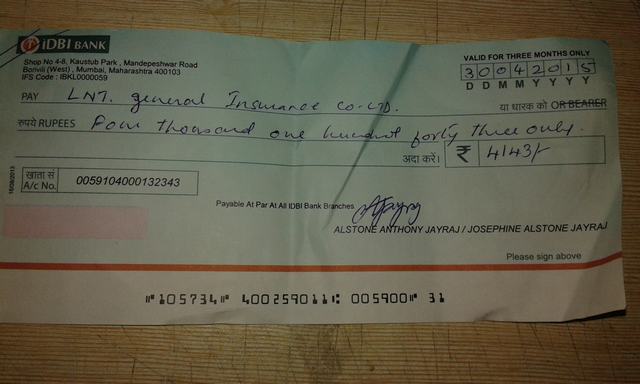 IDBI BANK
Shop No 4-8, Kaustub Park, Mandepeshwar Road
Borivli (West), Mumbai, Maharashtra 400103
IFS Code : IBKL0000059
VALID FOR THREE MONTHS ONLY
30042015
D D M M Y Y Y Y
PAY LNT. general Insurance Co-LTD. या धारक को OR BEARER
रुपये RUPEES Four thousand one hundred forty three only.
अदा करें। ₹ 4143/-
खाता सं A/c No. 0059104000132343
Payable At Par At All IDBI Bank Branches
ALSTONE ANTHONY JAYRAJ / JOSEPHINE ALSTONE JAYRAJ
Please sign above
⑈105734⑈ 400259011⑆ 005900⑈ 31